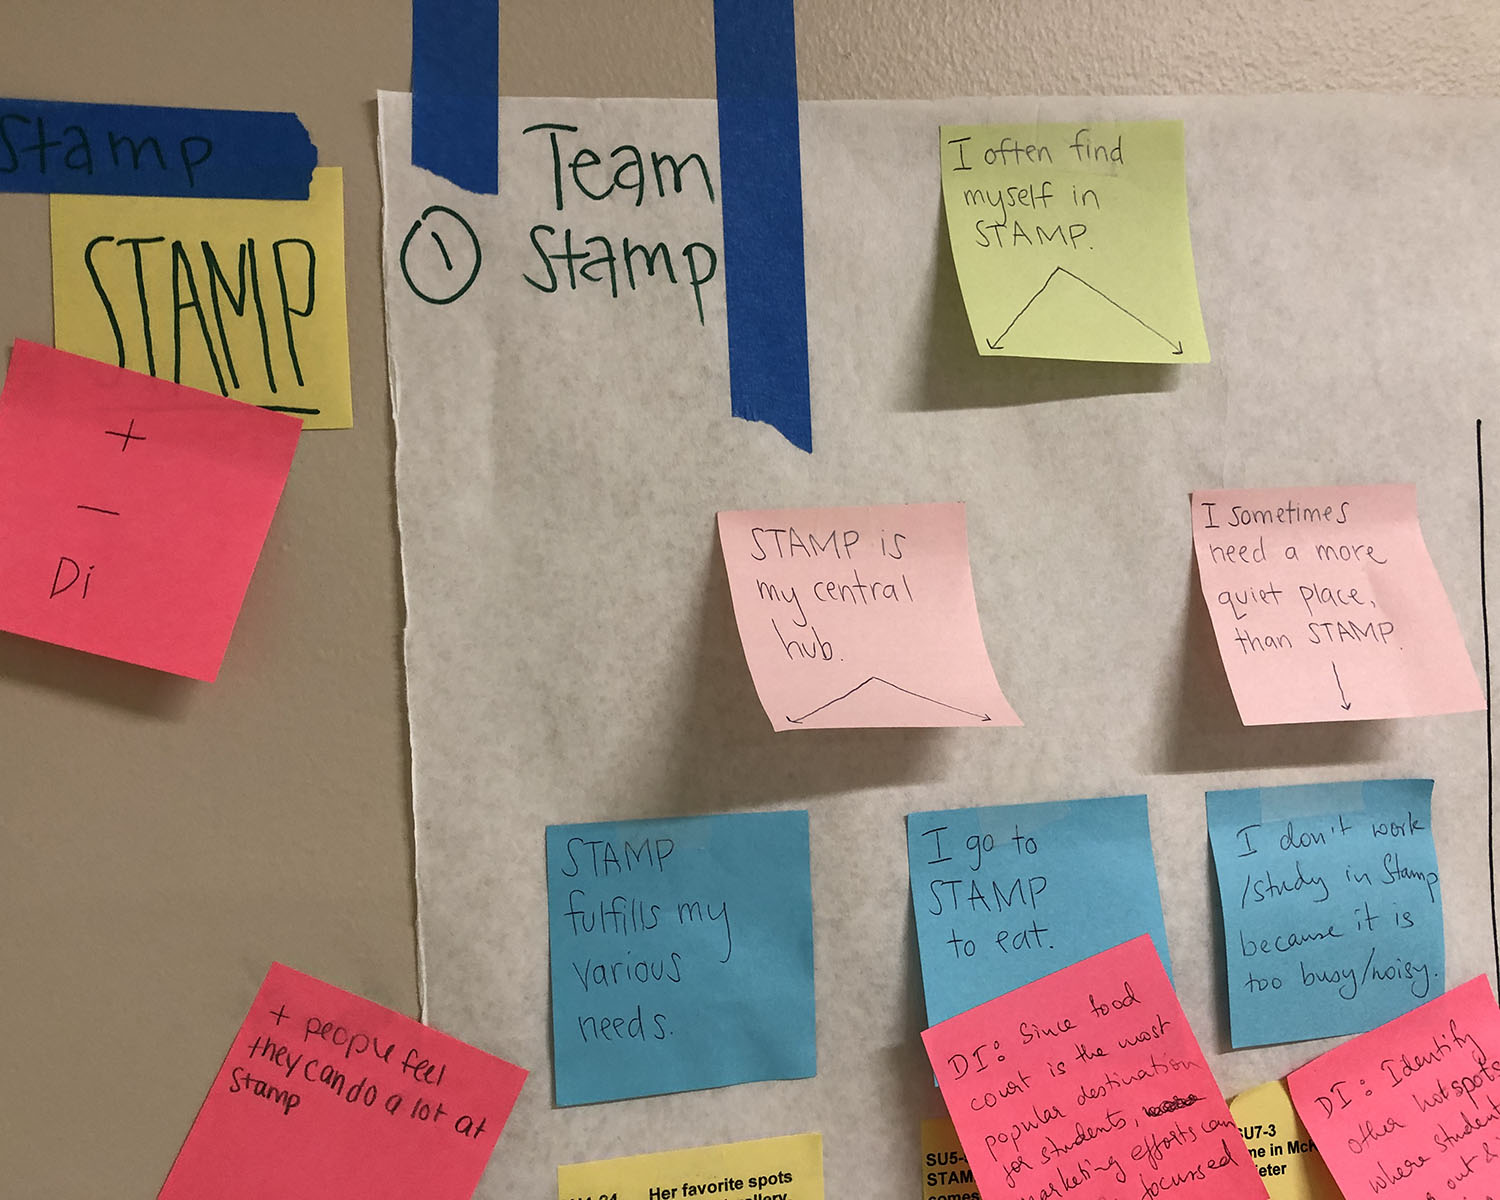 Stamp
STAMP
+
–
Di
Team
① Stamp
I often find
myself in
STAMP.
STAMP is
my central
hub.
I sometimes
need a more
quiet place,
than STAMP.
STAMP
fulfills my
various
needs.
I go to
STAMP
to eat.
I don't work
/study in Stamp
because it is
too busy/noisy.
+ people feel
they can do a lot at
Stamp
DI: Since food
court is the most
popular destination
for students,
marketing efforts can
focussed
DI: Identify
other hotspots
where students
out &
Her favorite spots
SU5-
STAM
comes
SU7-3
me in McK